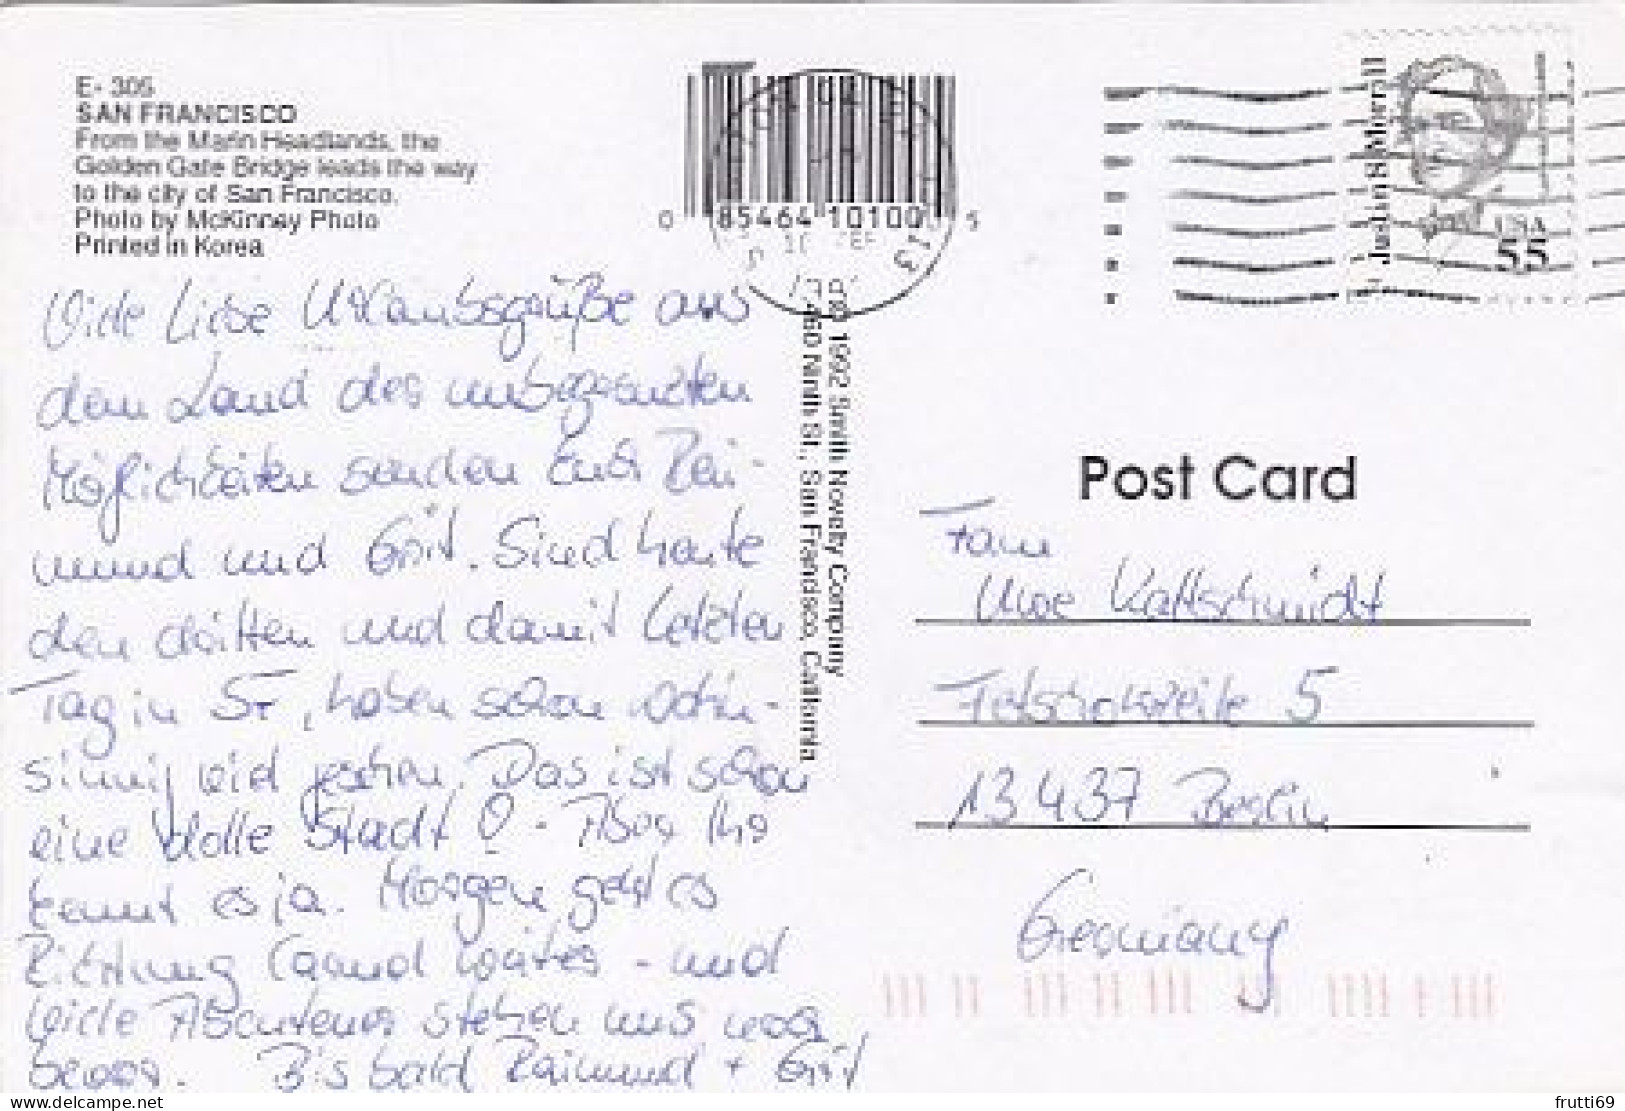 E- 305
SAN FRANCISCO
From the Marin Headlands, the
Golden Gate Bridge leads the way
to the city of San Francisco.
Photo by McKinney Photo
Printed in Korea
0 85464 10100 5
Justin S. Morrill
USA
55
Viele Liebe Urlaubsgrüße aus
dem Land des unbegrenzten
Möglichkeiten senden Euch Rai-
mund und Grit. Sind heute
den dritten und damit letzten
Tag in SF, haben schon wahn-
sinnig viel gesehen. Das ist schon
eine tolle Stadt! - Aber Ihr
kennt es ja. Morgen geht es
Richtung Grand weiter - und
viele Abenteuer stehen uns noch
bevor. Bis bald Raimund + Grit
© 1992 Smith Novelty Company
460 Ninth St., San Francisco, California
Post Card
Fam
Uwe Kattschmidt
5
13437 Berlin
Germany
frutti69
delcampe.net